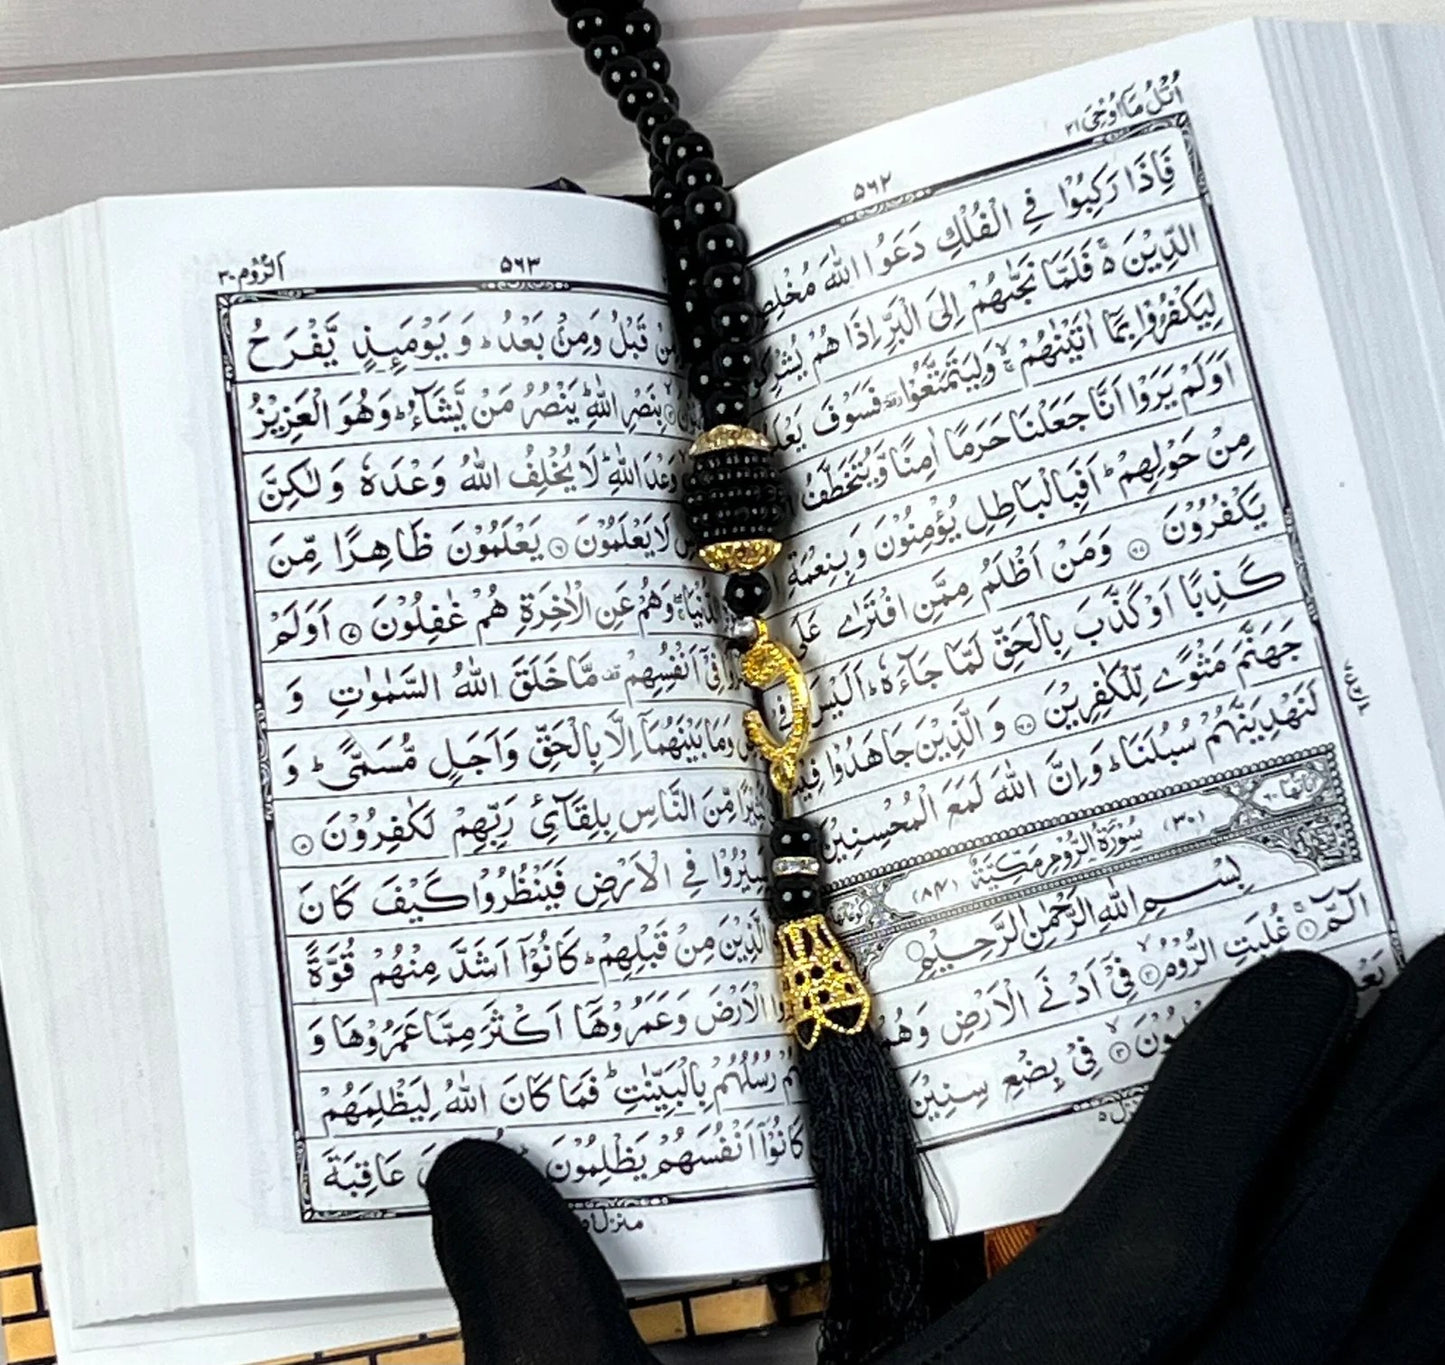 اُتۡلُ مَاۤ اُوۡحِیَ ٢١
٥٦٢
فَاِذَا رَكِبُوۡا فِی الۡفُلۡكِ دَعَوُا اللّٰهَ
الدِّیۡنَ ۚ۬ فَلَمَّا نَجّٰىهُمۡ اِلَی الۡبَرِّ اِذَا هُمۡ
لِیَكۡفُرُوۡا بِمَاۤ اٰتَیۡنٰهُمۡ ۙۚ وَ لِیَتَمَتَّعُوۡا ٝ فَسَوۡفَ
اَوَلَمۡ یَرَوۡا اَنَّا جَعَلۡنَا حَرَمًا اٰمِنًا وَّ یُتَخَطَّفُ
مِنۡ حَوۡلِهِمۡ ؕ اَفَبِالۡبَاطِلِ یُؤۡمِنُوۡنَ وَ بِنِعۡمَةِ
یَكۡفُرُوۡنَ ۝ وَ مَنۡ اَظۡلَمُ مِمَّنِ افۡتَرٰی عَلَی
كَذِبًا اَوۡ كَذَّبَ بِالۡحَقِّ لَمَّا جَآءَهٗ ؕ اَلَیۡسَ فِیۡ
جَهَنَّمَ مَثۡوًی لِّلۡكٰفِرِیۡنَ ۝ وَ الَّذِیۡنَ جَاهَدُوۡا
لَنَهۡدِیَنَّهُمۡ سُبُلَنَا ؕ وَ اِنَّ اللّٰهَ لَمَعَ الۡمُحۡسِنِیۡنَ
(٣٠) سُوۡرَةُ الرُّوۡمِ مَكِّیَّةٌ (٨٤)
بِسۡمِ اللّٰهِ الرَّحۡمٰنِ الرَّحِیۡمِ
الٓمّٓ ۚ غُلِبَتِ الرُّوۡمُ ۙ فِیۡۤ اَدۡنَی الۡاَرۡضِ وَ هُمۡ
فِیۡ بِضۡعِ سِنِیۡنَ
اَلرُّوۡم ٣٠
٥٦٣
مِنۡ قَبۡلُ وَ مِنۡۢ بَعۡدُ ؕ وَ یَوۡمَئِذٍ یَّفۡرَحُ
بِنَصۡرِ اللّٰهِ ؕ یَنۡصُرُ مَنۡ یَّشَآءُ ؕ وَ هُوَ الۡعَزِیۡزُ
وَعۡدَ اللّٰهِ ؕ لَا یُخۡلِفُ اللّٰهُ وَعۡدَهٗ وَ لٰكِنَّ
لَا یَعۡلَمُوۡنَ ۝٦ یَعۡلَمُوۡنَ ظَاهِرًا مِّنَ
الدُّنۡیَا ۚۖ وَ هُمۡ عَنِ الۡاٰخِرَةِ هُمۡ غٰفِلُوۡنَ ۝٧ اَوَلَمۡ
فِیۡۤ اَنۡفُسِهِمۡ ۟ مَا خَلَقَ اللّٰهُ السَّمٰوٰتِ وَ
وَ مَا بَیۡنَهُمَاۤ اِلَّا بِالۡحَقِّ وَ اَجَلٍ مُّسَمًّی ؕ وَ
مِّنَ النَّاسِ بِلِقَآئِ رَبِّهِمۡ لَكٰفِرُوۡنَ ۝٨
یَسِیۡرُوۡا فِی الۡاَرۡضِ فَیَنۡظُرُوۡا كَیۡفَ كَانَ
الَّذِیۡنَ مِنۡ قَبۡلِهِمۡ ؕ كَانُوۡۤا اَشَدَّ مِنۡهُمۡ قُوَّةً
الۡاَرۡضَ وَ عَمَرُوۡهَاۤ اَكۡثَرَ مِمَّا عَمَرُوۡهَا وَ
رُسُلُهُمۡ بِالۡبَیِّنٰتِ ؕ فَمَا كَانَ اللّٰهُ لِیَظۡلِمَهُمۡ
كَانُوۡۤا اَنۡفُسَهُمۡ یَظۡلِمُوۡنَ عَاقِبَةَ
منزل